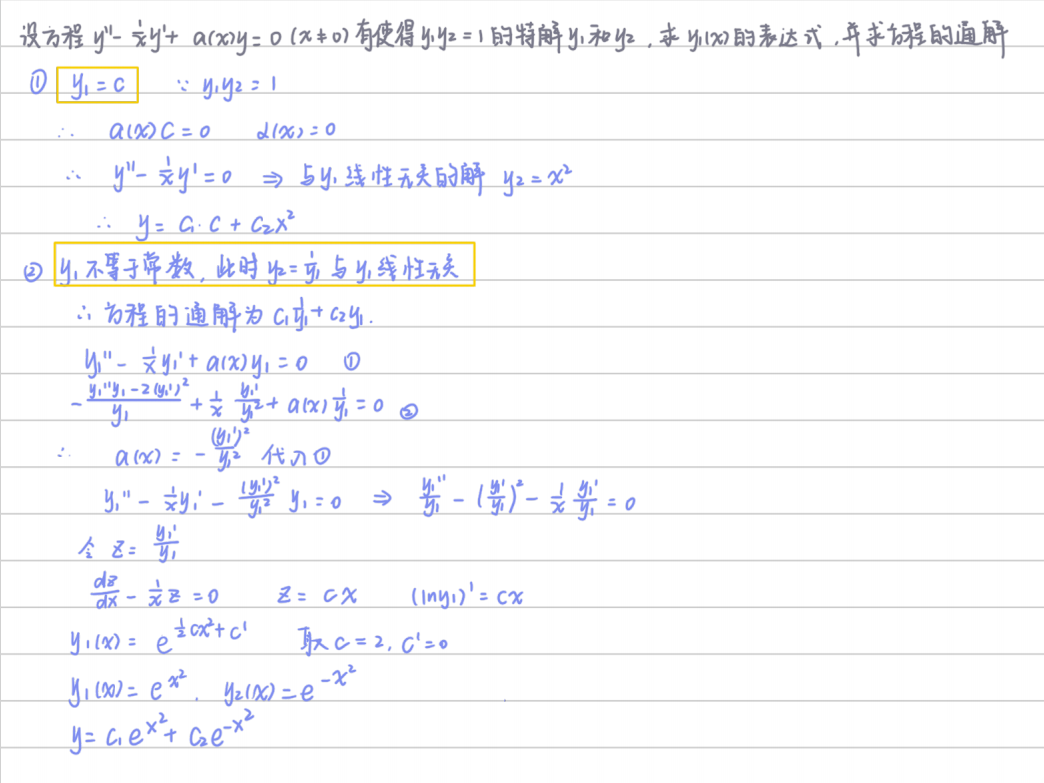 设方程 y'' - 1/x y' + a(x)y = 0 (x≠0) 有使得 y₁y₂ = 1 的特解 y₁ 和 y₂, 求 y₁(x) 的表达式, 并求方程的通解
① y₁ = c ∵ y₁y₂ = 1
∴ a(x)C = 0 a(x) = 0
∴ y'' - 1/x y' = 0 ⇒ 与 y₁ 线性无关的解 y₂ = x²
∴ y = C₁·C + C₂x²
② y₁ 不等于常数, 此时 y₂ = 1/y₁ 与 y₁ 线性无关
∴ 方程的通解为 C₁ 1/y₁ + C₂y₁.
y₁'' - 1/x y₁' + a(x)y₁ = 0 ①
- (y₁''y₁ - 2(y₁')²)/y₁ + 1/x y₁'/y₁² + a(x) 1/y₁ = 0 ②
∴ a(x) = - (y₁')²/y₁² 代入①
y₁'' - 1/x y₁' - (y₁')²/y₁² y₁ = 0 ⇒ y₁''/y₁ - (y₁'/y₁)² - 1/x y₁'/y₁ = 0
令 z = y₁'/y₁
dz/dx - 1/x z = 0 z = cx (lny₁)' = cx
y₁(x) = e^(1/2 cx² + c') 取 c = 2, c' = 0
y₁(x) = e^(x²). y₂(x) = e^(-x²)
y = C₁e^(x²) + C₂e^(-x²)